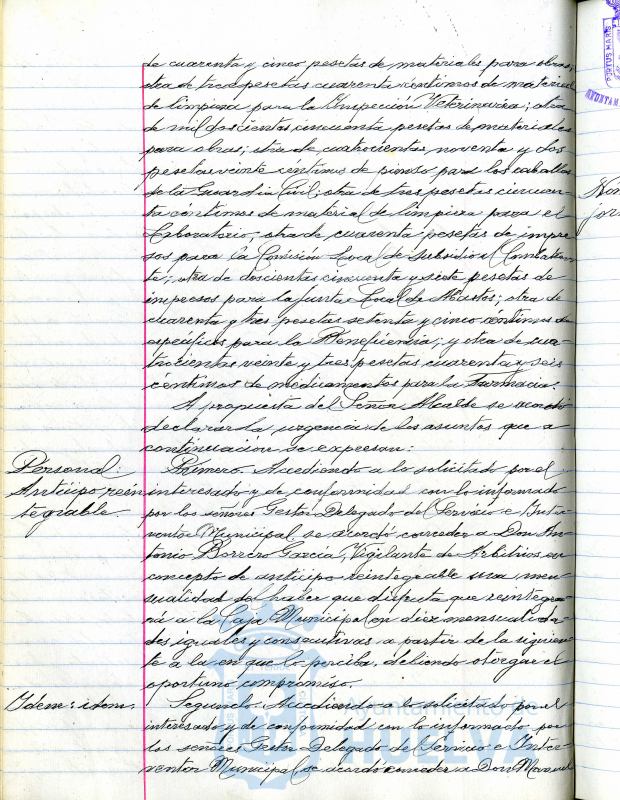 de cuarenta y cinco pesetas de materiales para obras;
otra de tres pesetas cuarenta céntimos de material
de limpieza para la Inspección Veterinaria; otra
de mil doscientas cincuenta pesetas de materiales
para obras; otra de cuatrocientas noventa y dos
pesetas veinte céntimos de pienso para los caballos
de la Guardia Civil; otra de tres pesetas cincuen-
ta céntimos de material de limpieza para el
Laboratorio; otra de cuarenta pesetas de impre-
sos para la Comisión Local de Subsidio al Combatien-
te; otra de doscientas cincuenta y siete pesetas de
impresos para la Junta Local de Abastos; otra de
cuarenta y tres pesetas setenta y cinco céntimos de
específicos para la Beneficencia; y otra de cua-
trocientas veinte y tres pesetas cuarenta y seis
céntimos de medicamentos para la Farmacia.
A propuesta del Señor Alcalde se acordó
declarar la urgencia de los asuntos que a
continuación se expresan:
Personal:
Anticipo rein
tegrable
Primero. Accediendo a lo solicitado por el
interesado y de conformidad con lo informado
por los señores Gestor Delegado del Servicio e Inter-
ventor Municipal se acordó conceder a Don An-
tonio Borrero García, Vigilante de Arbitrios, en
concepto de anticipo reintegrable una men-
sualidad del haber que disfruta que reintegra-
rá a la Caja Municipal en diez mensualida-
des iguales y consecutivas a partir de la siguien-
te a la en que lo perciba, debiendo otorgar el
oportuno compromiso.
Idem: idem.
Segundo. Accediendo a lo solicitado por el
interesado y de conformidad con lo informado por
los señores Gestor Delegado del Servicio e Inter-
ventor Municipal se acordó conceder a Don Manuel
Ayuntamiento de
HUELVA
PORTUS MARIS